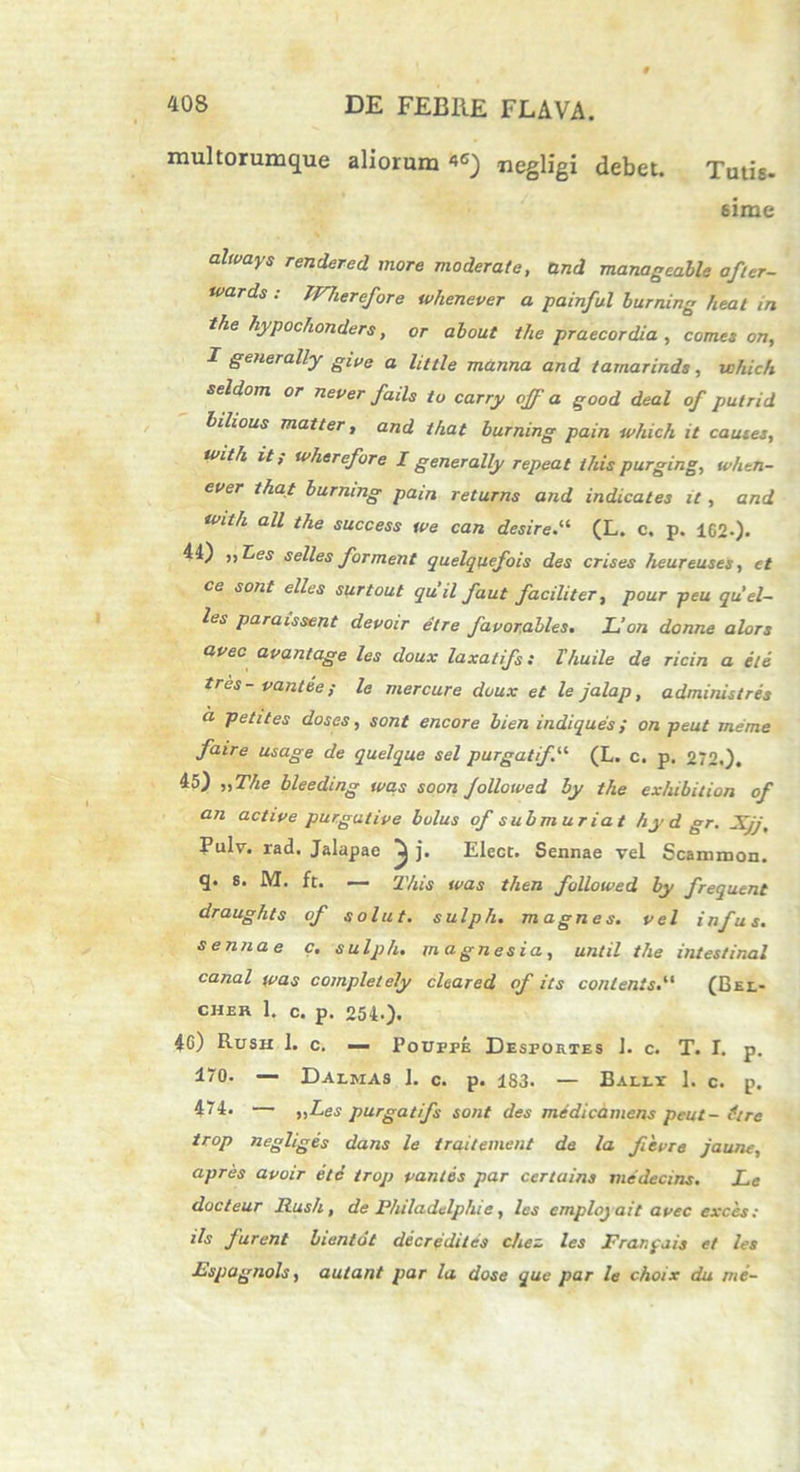 408 DE FEBRE FLAVA.
multorumque aliorum ⁴⁶) negligi debet. Tutis-
sime
always rendered more moderate, and manageable after-
wards: Wherefore whenever a painful burning heat in
the hypochonders, or about the praecordia, comes on,
I generally give a little manna and tamarinds, which
seldom or never fails to carry off a good deal of putrid
bilious matter, and that burning pain which it causes,
with it; wherefore I generally repeat this purging, when-
ever that burning pain returns and indicates it, and
with all the success we can desire.“ (L. c. p. 162.).
44) „Les selles forment quelquefois des crises heureuses, et
ce sont elles surtout qu'il faut faciliter, pour peu qu'el-
les paraissent devoir être favorables. L'on donne alors
avec avantage les doux laxatifs: l'huile de ricin a été
très-vantée; le mercure doux et le jalap, administrés
à petites doses, sont encore bien indiqués; on peut même
faire usage de quelque sel purgatif.“ (L. c. p. 272.).
45) „The bleeding was soon followed by the exhibition of
an active purgative bolus of submuriat hyd gr. Xjj.
Pulv. rad. Jalapae ℈j. Elect. Sennae vel Scammon.
q. s. M. ft. — This was then followed by frequent
draughts of solut. sulph. magnes. vel infus.
sennae c. sulph. magnesia, until the intestinal
canal was completely cleared of its contents.“ (BEL-
CHER l. c. p. 254.).
46) RUSH l. c. — POUPPÉ DESPORTES l. c. T. I. p.
170. — DALMAS l. c. p. 183. — BALLY l. c. p.
474. — „Les purgatifs sont des médicamens peut-être
trop negligés dans le traitement de la fièvre jaune,
après avoir été trop vantés par certains médecins. Le
docteur Rush, de Philadelphie, les employait avec excès:
ils furent bientôt décrédités chez les Français et les
Espagnols, autant par la dose que par le choix du mé-